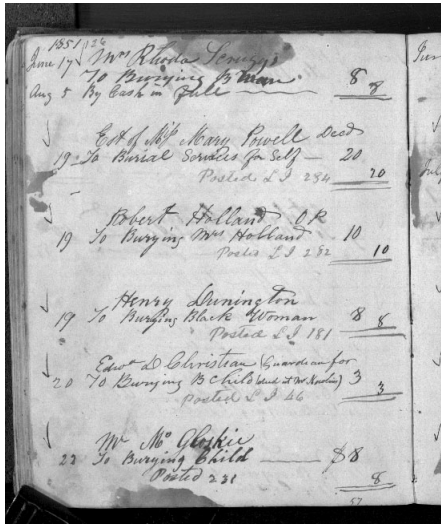 1851 | 136
June 17 Mrs Rhoda Scruggs
To Burying B Man 8
Aug 5 By Cash in Full 8
Est of Mrs Mary Powell Decd
19 To Burial Services for Self 20
Posted L I 284 20
Robert Holland OR
19 To Burying Mrs Holland 10
Posted L I 282 10
Henry Dunington
19 To Burying Black Woman 8 8
Posted L I 181
Edwd D Christian (Guardian for
20 To Burying B Child (died at Mr 3
Posted L I 46 3
Mr Mc
23 To Burying Child $8
Posted 231 8
57